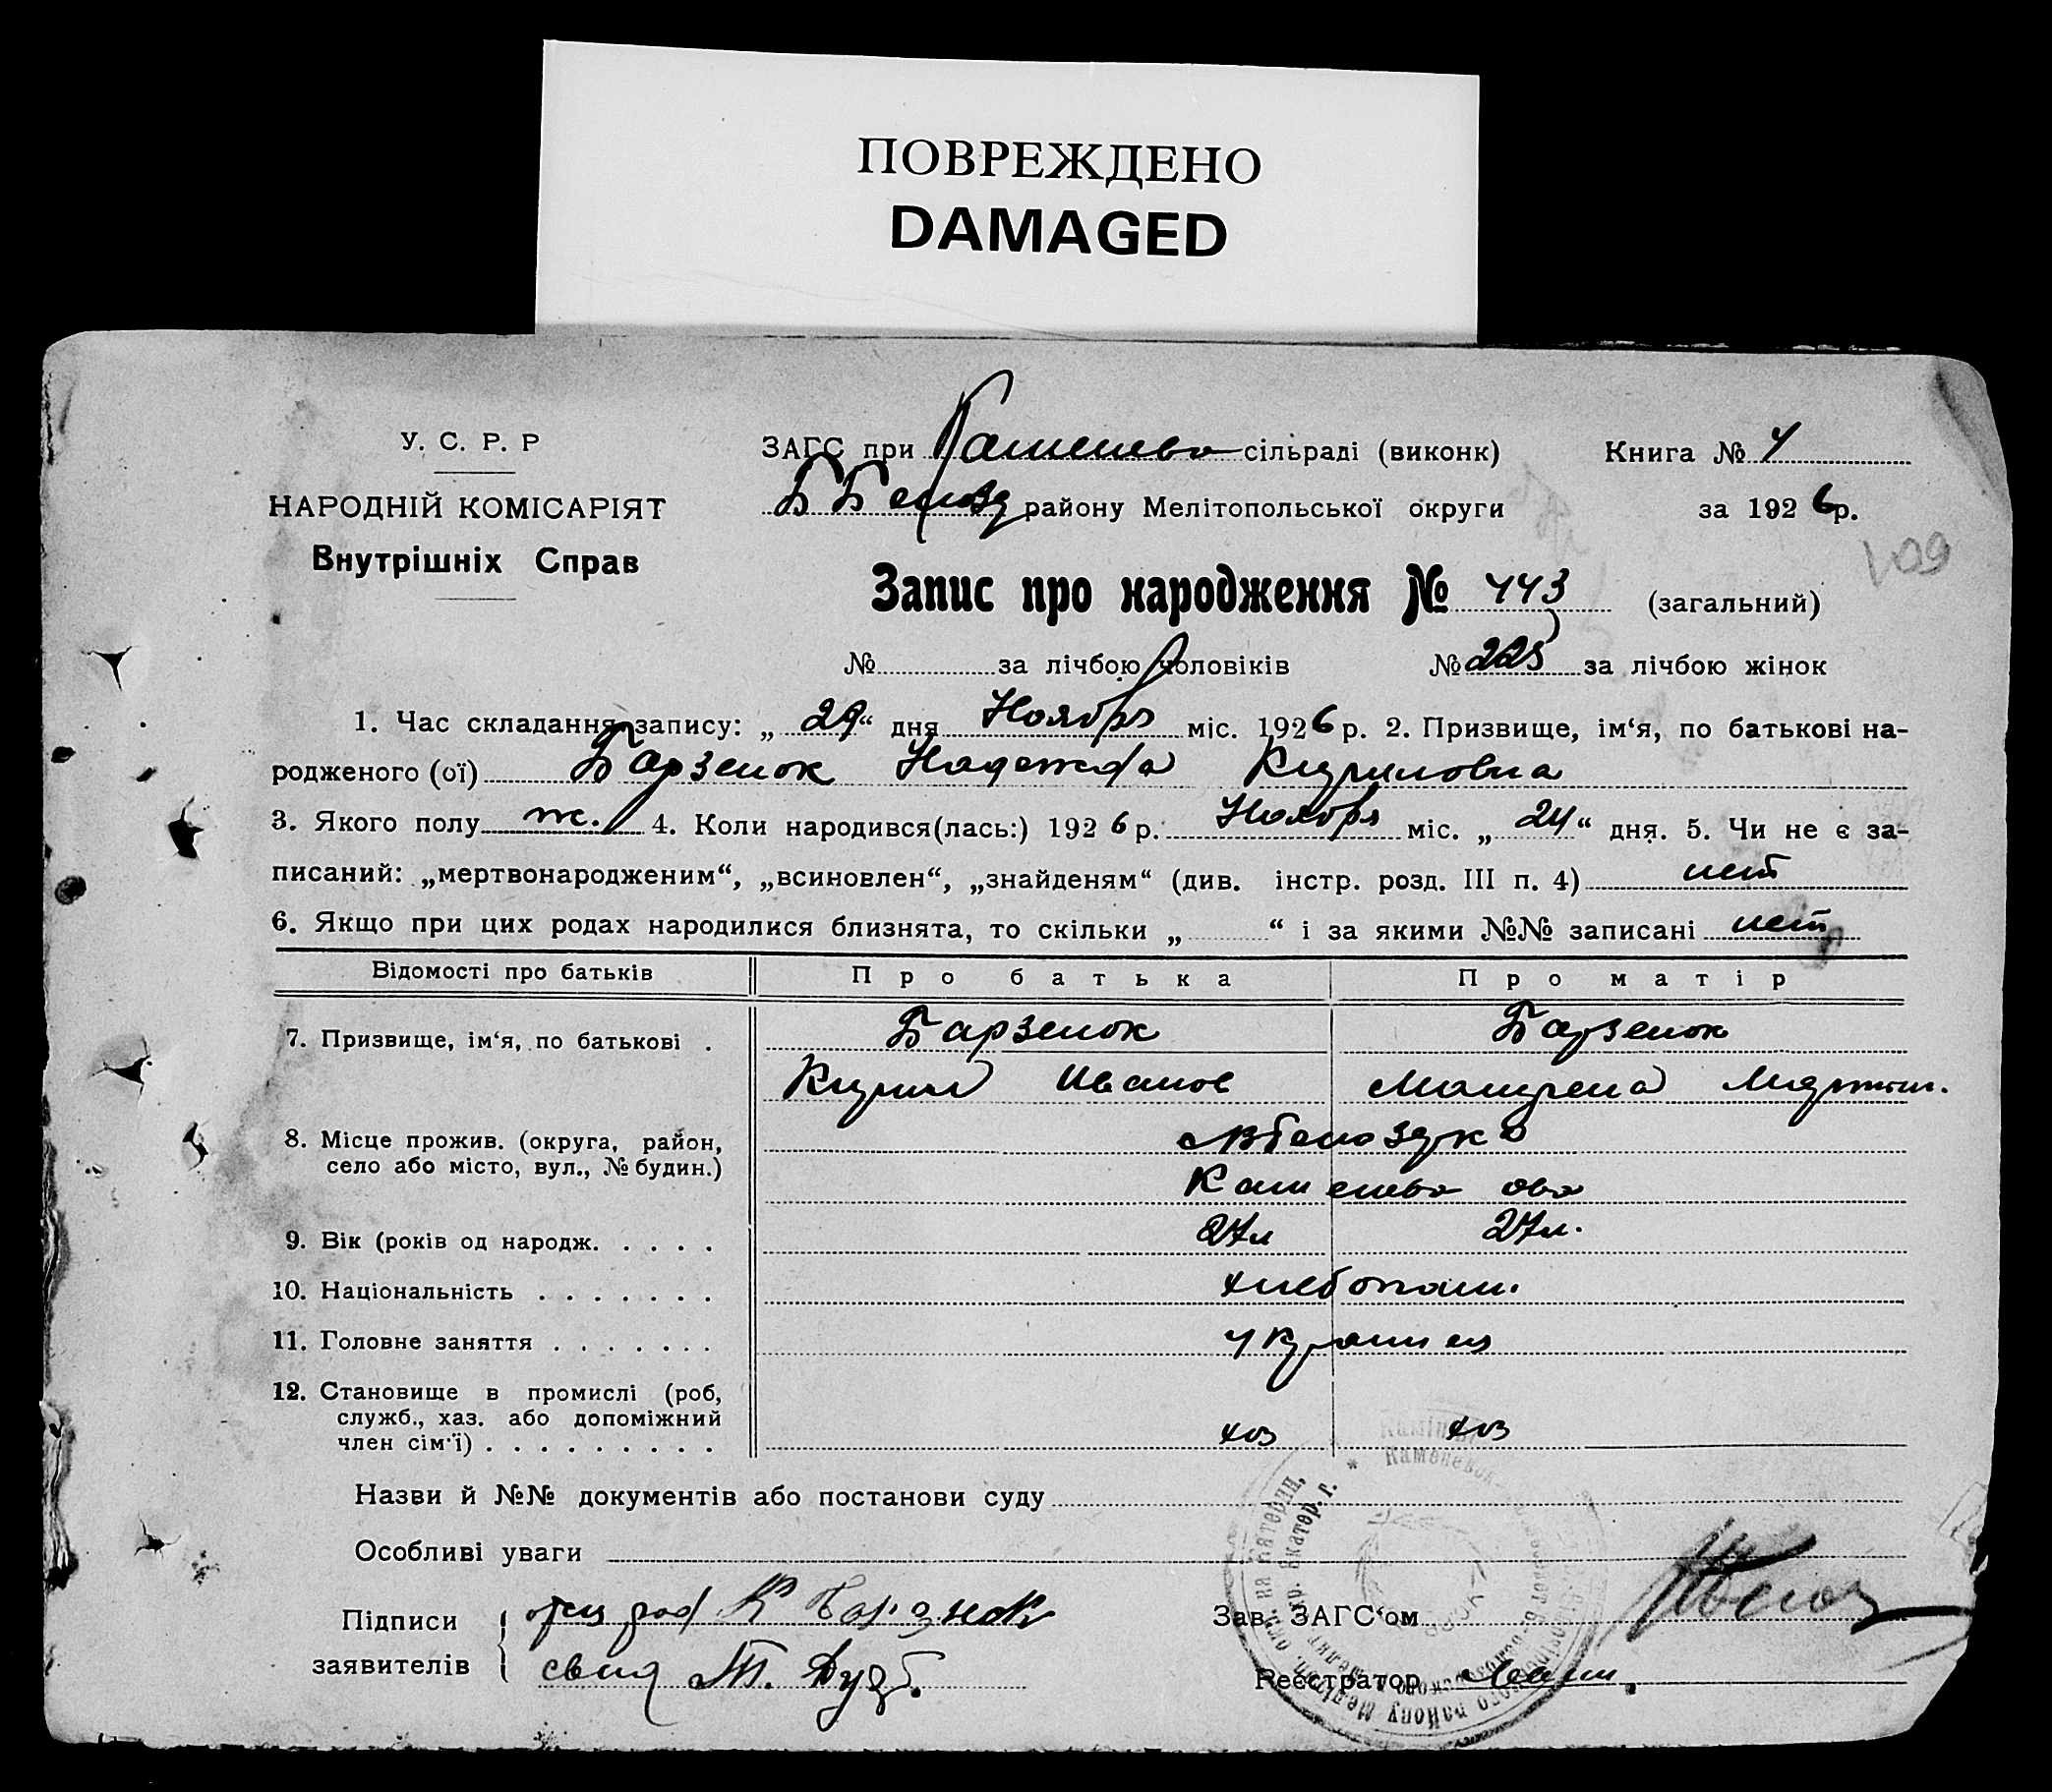 ПОВРЕЖДЕНО
DAMAGED
У. С. Р. Р
НАРОДНІЙ КОМІСАРІЯТ
Внутрішніх Справ
ЗАГС при Каменево сільраді (виконк)
ББелозд району Мелітопольської округи
Книга № 4
за 1926р.
109
Запис про народження № 443 (загальний)
№ за лічбою чоловіків № 225 за лічбою жінок
1. Час складання запису: „ 29 “ дня Ноября міс. 1926 р. 2. Призвище, ім‘я, по батькові на-
родженого (ої) Барзенок Надежда Кириловна
3. Якого полу ж. 4. Коли народився(лась:) 1926 р. Ноября міс. „ 24 “ дня. 5. Чи не є за-
писаний: „мертвонародженим“, „всиновлен“, „знайденям“ (див. інстр. розд. III п. 4) нет
6. Якщо при цих родах народилися близнята, то скільки „ “ і за якими №№ записані нет
Відомості про батьків Про батька Про матір
7. Призвище, ім‘я, по батькові . Барзенок Барзенок
Кирил Иванов Матрена
8. Місце прожив. (округа, район,
село або місто, вул., № будин.)
Каменево
9. Вік (років од народж. . . . . 27л 27л.
10. Національність . . . . . . . хлебопаш.
11. Головне заняття . . . . . . . украинец
12. Становище в промислі (роб,
служб., хаз. або допоміжний
член сім‘ї) . . . . . . . . . хоз хоз
Назви й №№ документів або постанови суду
Особливі уваги
Підписи
заявителів
отец К Барзнок
свид Т. Дуб.
Зав. ЗАГС‘ом
Реєстратор